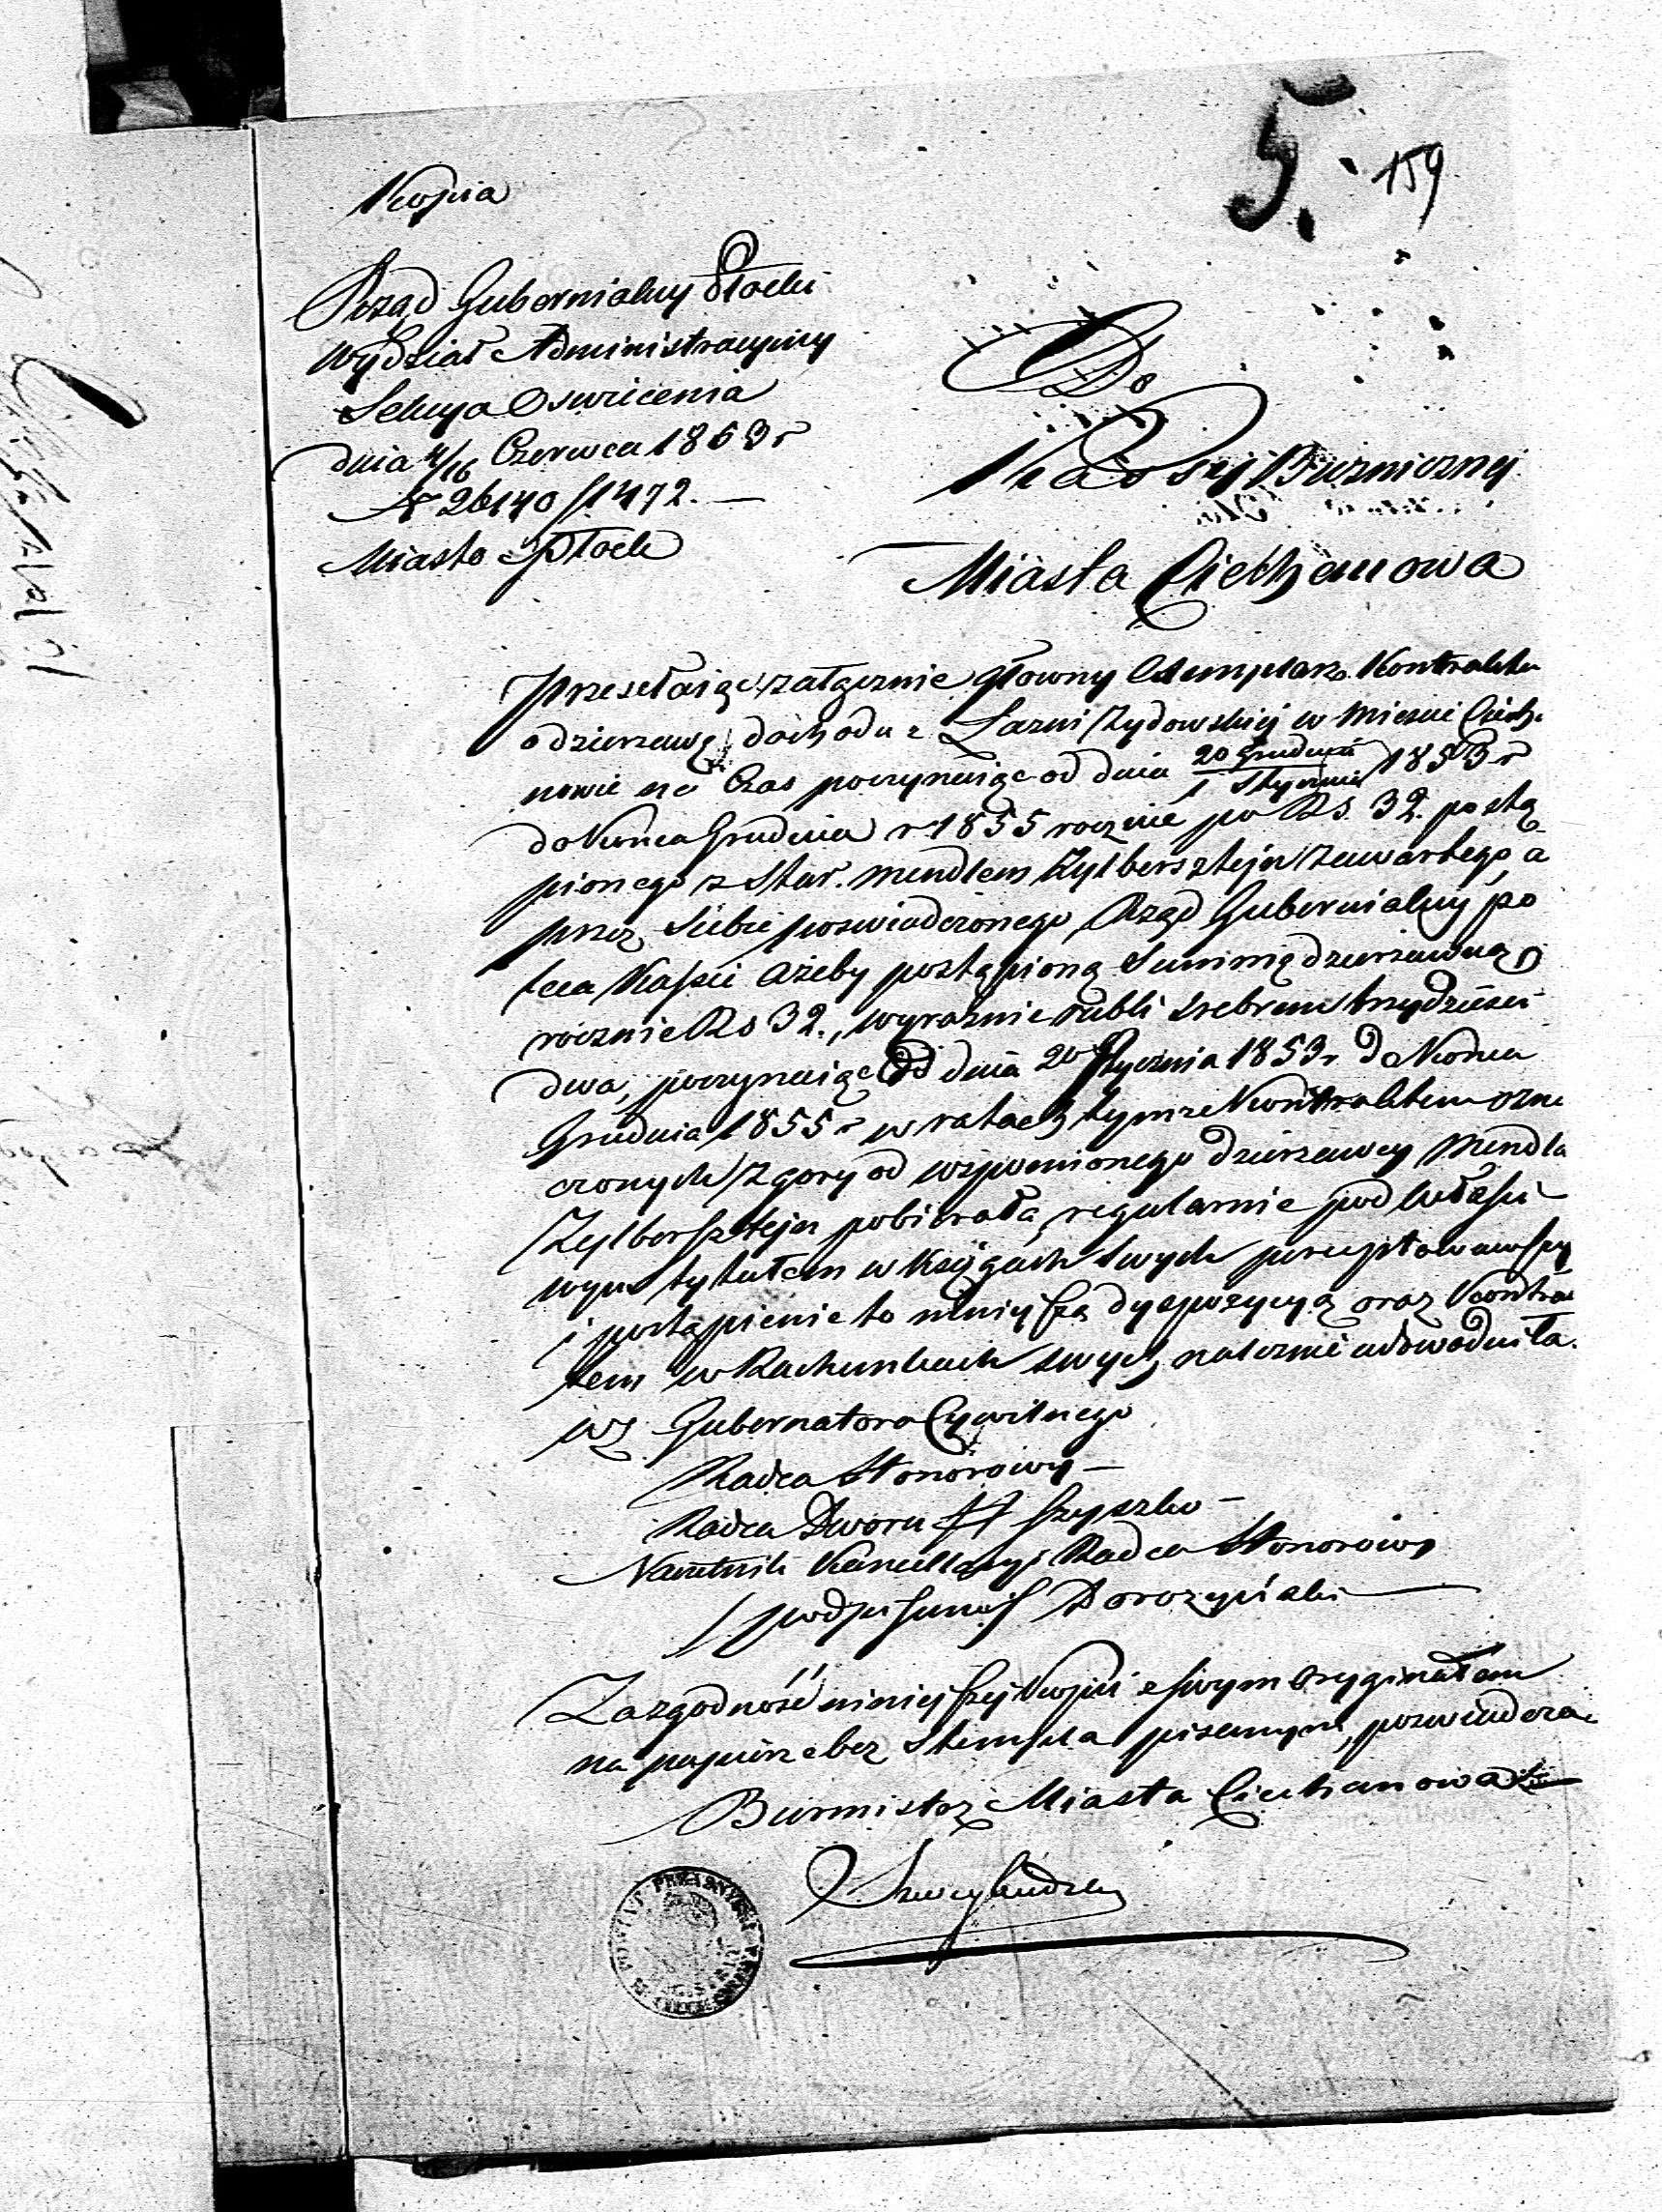 5.
159
Kopia
Rząd Gubernialny Płocki
Wydział Administracyiny
Sekcya Oswiecenia
dnia 4/16 Czerwca 1853 r
N 26140/1472. —
Miasto Płock
Do
Kassy Bużniczney
Miasta Ciechanowa
Przesełaiąc załącznie głowny Exemplarz Kontraktu
o dzierzawę dochodu z Łazni Zydowskiej w Miescie Ciecha
nowie na Czas poczynaiąc od dnia 20 Grudnia / 1 Stycznia 1853 r
do Konca Grudnia r 1855 rocznie po Rs 32. postą
pionego z Star. Mendlem Zylbersztejn zawartego, a
przez Siebie poswiadczonego, Rząd Gubernialny po
leca Kassie ażeby postąpioną Summę dzierzawną
rocznie Rs 32., wyraznie rubli srebrem trzydziesci
dwa, poczynaiąc od dnia Stycznia 1853 r do Konca
Grudnia 1855 r w ratach tymze Kontraktem ozna
czonych z gory od wspomnionego dzierzawcy Mendla
Zylbersztejn pobierała, regularnie pod własci
wym tytułem w Księgach swych
i postąpienie to ninieyszą dyspozycyą oraz Kontrak
tem w Rachunkach swych nalezcie udowodniła.
wz Gubernatora Cywilnego
Radca Honorowy —
Radca Dworu Szyszko —
Naczelnik Kancellaryi Radca Honorowy
/podpisano/
Za zgodność ninieyszej Kopii z swym Oryginałem
na papierze bez Stempla pisanym, poswiadcza
Burmistrz Miasta Ciechanowa